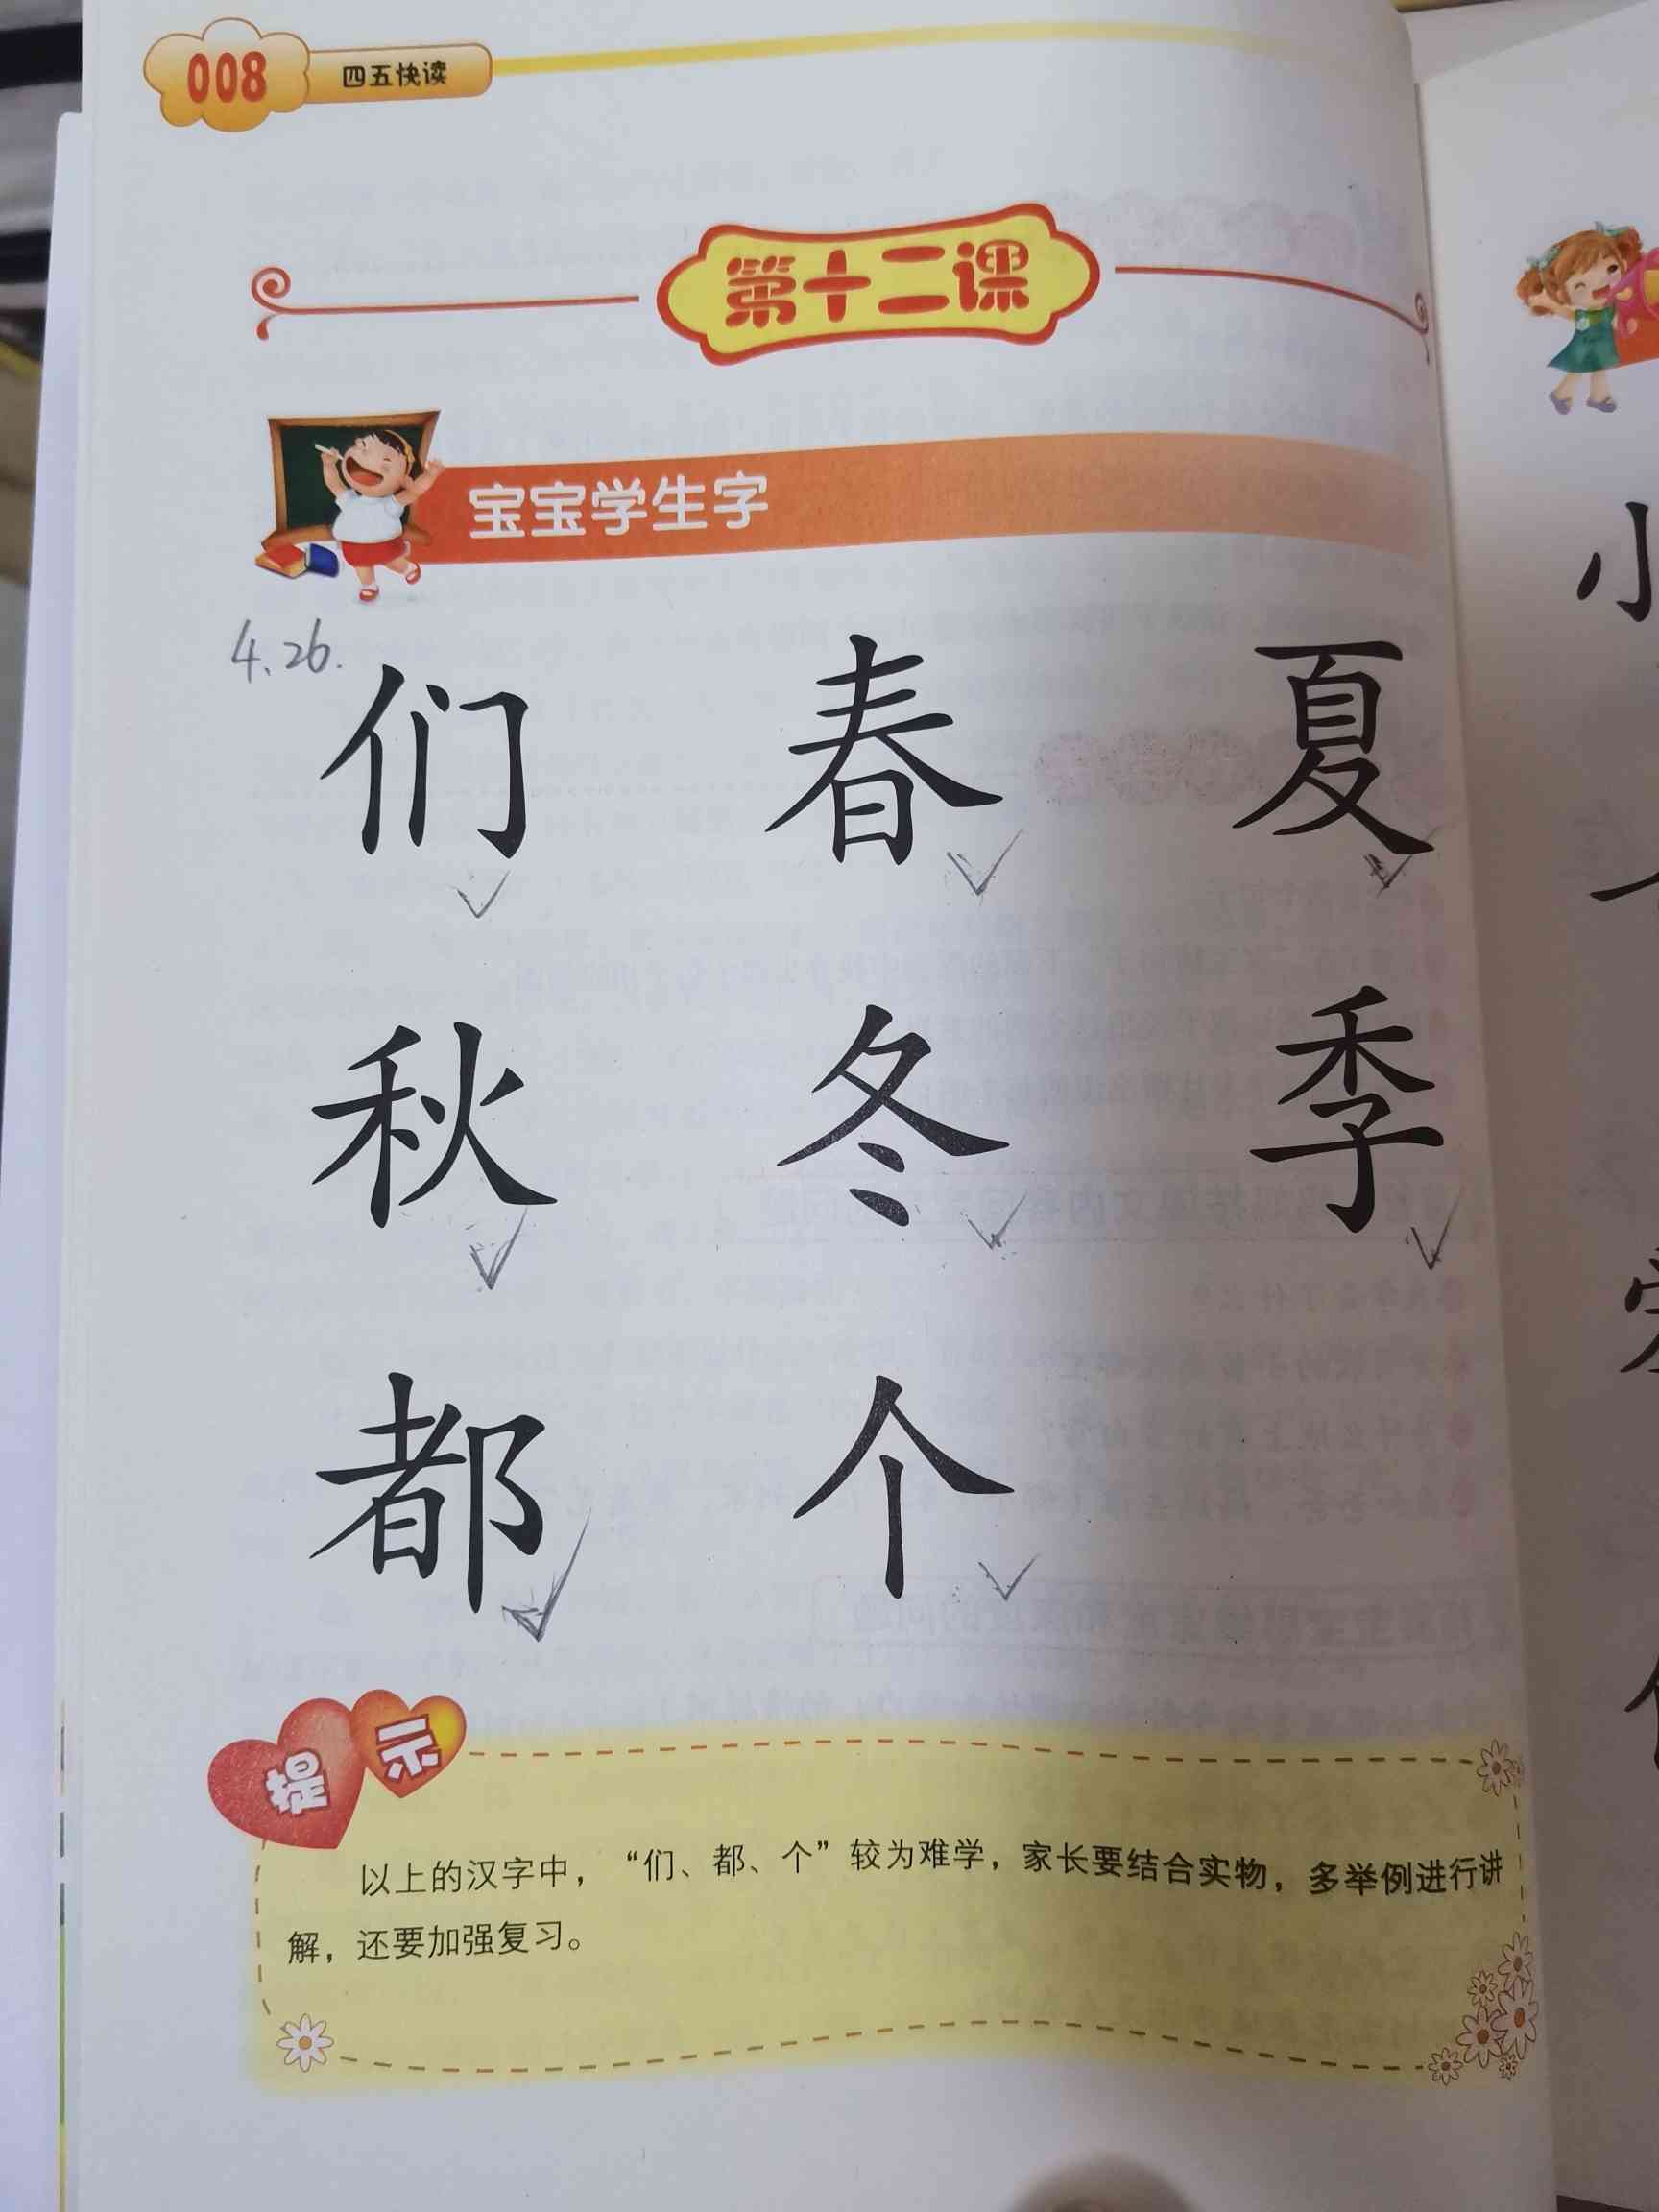 008 四五快读
第十二课
宝宝学生字
4.26.
们 春 夏
秋 冬 季
都 个
提示
以上的汉字中，“们、都、个”较为难学，家长要结合实物，多举例进行讲
解，还要加强复习。
小